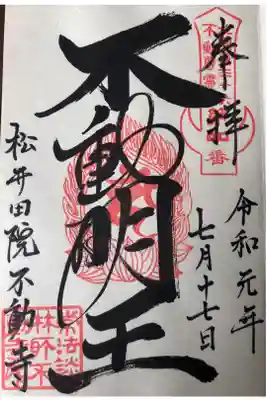 奉拝
令和元年
七月十七日
不動明王
松井田院不動寺